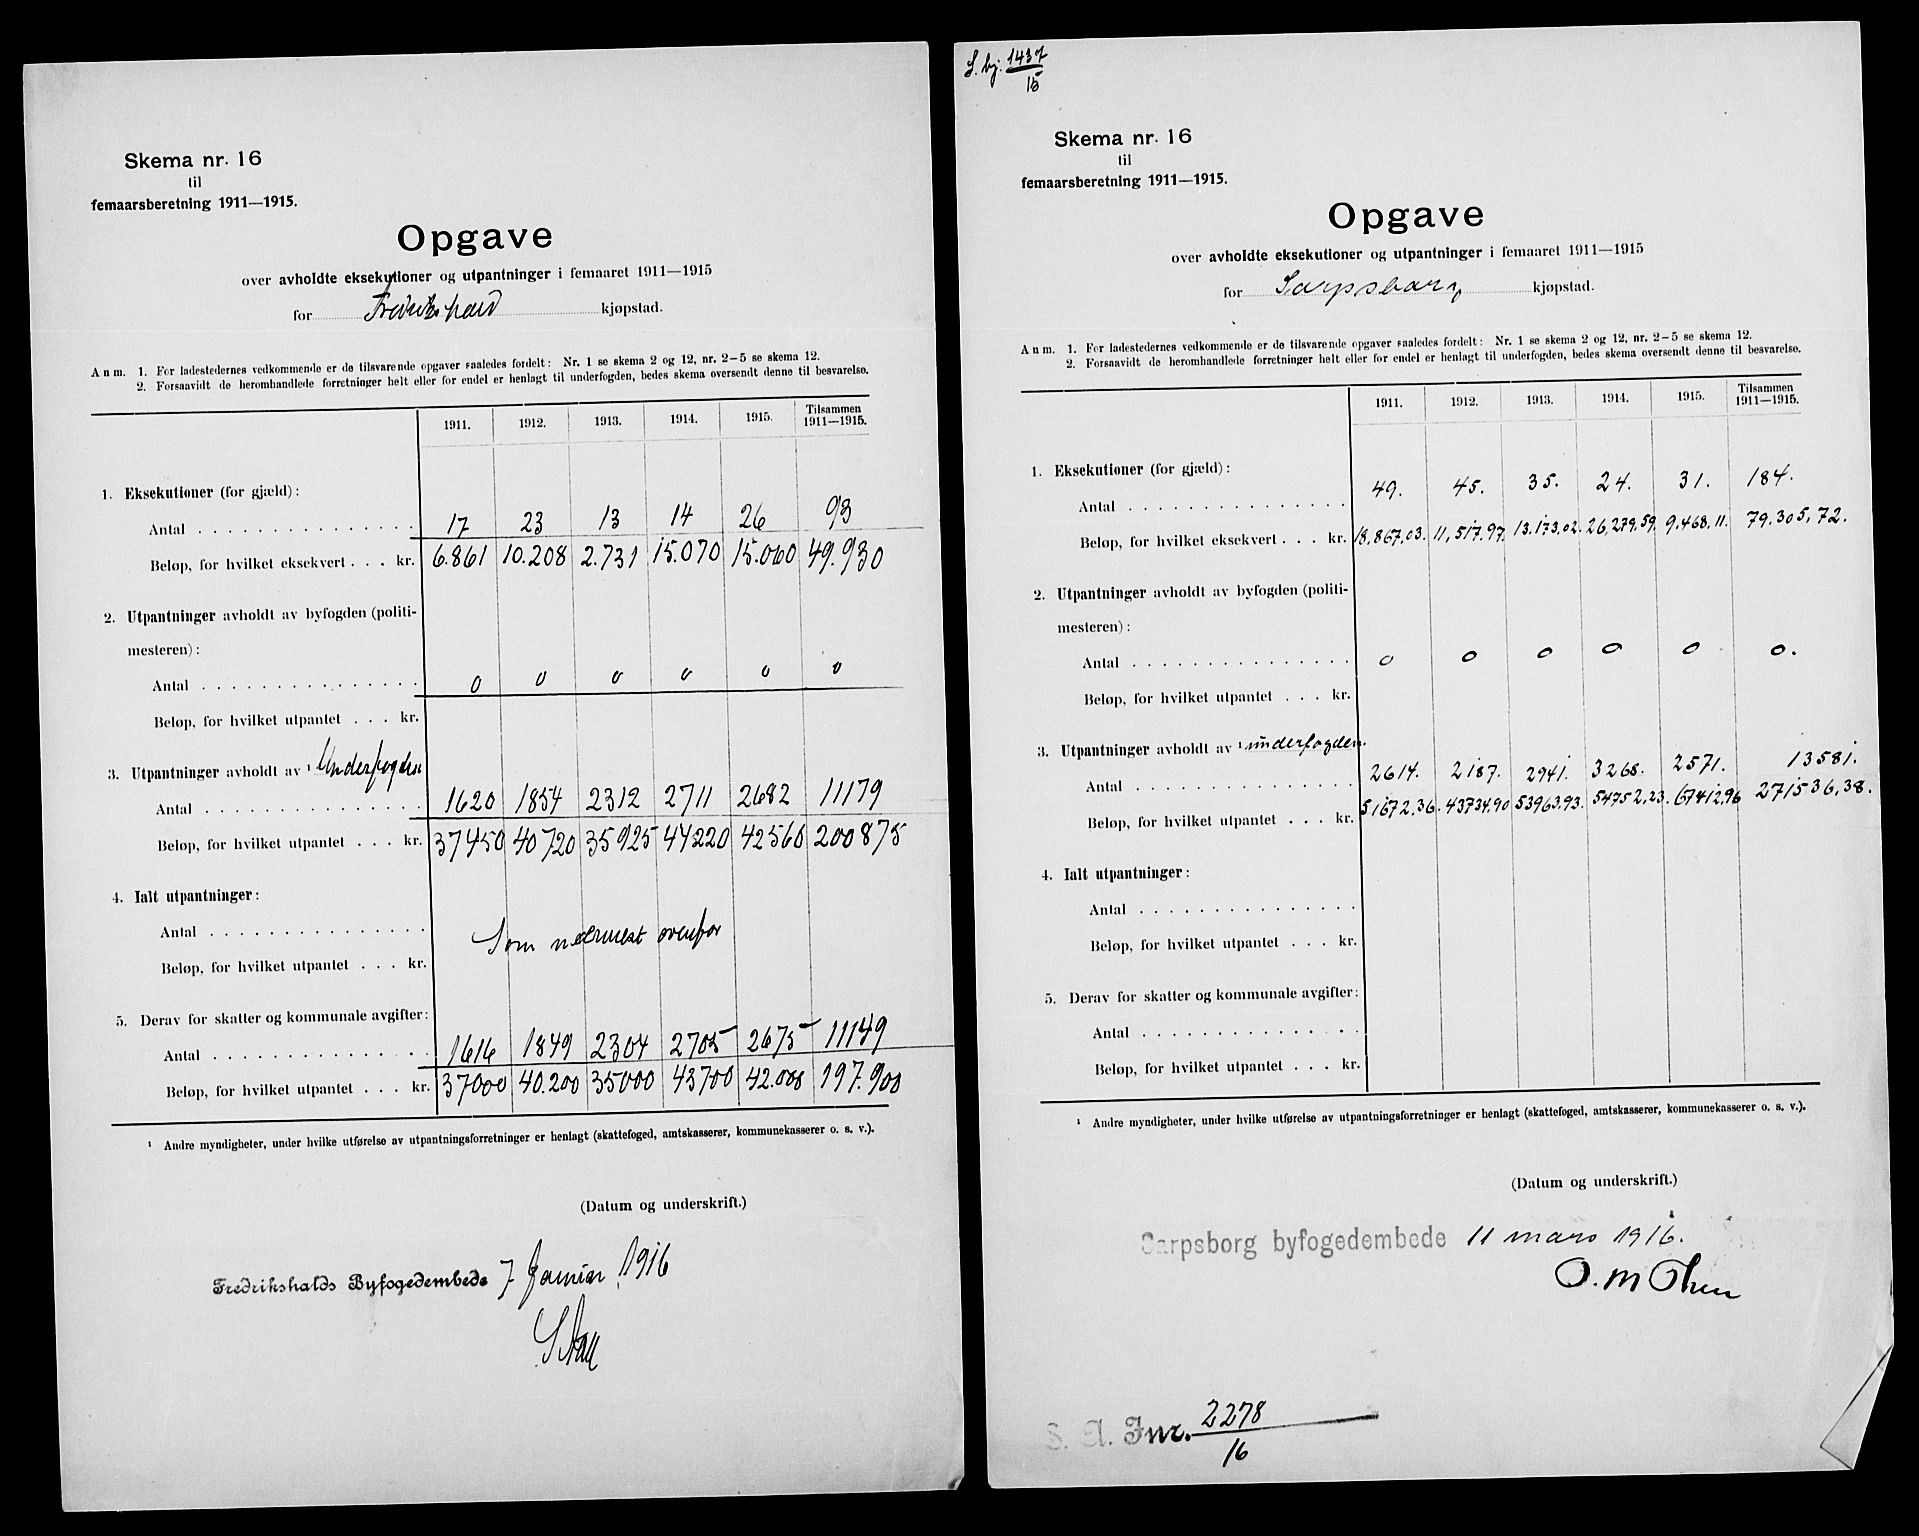 Skema nr. 16
til
femaarsberetning 1911—1915.
Opgave
over avholdte eksekutioner og utpantninger i femaaret 1911—1915
for Fredrikshald kjøpstad.
Anm. 1. For ladestedernes vedkommende er de tilsvarende opgaver saaledes fordelt: Nr. 1 se skema 2 og 12, nr. 2–5 se skema 12.
2. Forsaavidt de heromhandlede forretninger helt eller for endel er henlagt til underfogden, bedes skema oversendt denne til besvarelse.
1911. 1912. 1913. 1914. 1915. Tilsammen 1911—1915.
1. Eksekutioner (for gjæld):
Antal 17 23 13 14 26 93
Beløp, for hvilket eksekvert . . . kr. 6.861 10.208 2.731 15.070 15.060 49.930
2. Utpantninger avholdt av byfogden (politi-
mesteren):
Antal 0 0 0 0 0 0
Beløp, for hvilket utpantet . . . kr.
3. Utpantninger avholdt av ¹ Underfogden
Antal 1620 1854 2312 2711 2682 11179
Beløp, for hvilket utpantet . . . kr. 37450 40720 35925 44220 42560 200875
4. Ialt utpantninger:
Antal
Som nærmest ovenfor
Beløp, for hvilket utpantet . . . kr.
5. Derav for skatter og kommunale avgifter:
Antal 1616 1849 2304 2705 2675 11149
Beløp, for hvilket utpantet . . . kr. 37000 40.200 35000 43700 42.000 197.900
¹ Andre myndigheter, under hvilke utførelse av utpantningsforretninger er henlagt (skattefoged, amtskasserer, kommunekasserer o. s. v.).
(Datum og underskrift.)
Fredrikshalds Byfogedembede 7 Januar 1916
S. by. 1437/15
Skema nr. 16
til
femaarsberetning 1911—1915.
Opgave
over avholdte eksekutioner og utpantninger i femaaret 1911—1915
for Sarpsborg kjøpstad.
Anm. 1. For ladestedernes vedkommende er de tilsvarende opgaver saaledes fordelt: Nr. 1 se skema 2 og 12, nr. 2–5 se skema 12.
2. Forsaavidt de heromhandlede forretninger helt eller for endel er henlagt til underfogden, bedes skema oversendt denne til besvarelse.
1911. 1912. 1913. 1914. 1915. Tilsammen 1911—1915.
1. Eksekutioner (for gjæld):
Antal 49. 45. 35. 24. 31. 184.
Beløp, for hvilket eksekvert . . . kr. 18,867,03. 11,517,97. 13.173,02. 26,279,59. 9.468,11. 79.305,72.
2. Utpantninger avholdt av byfogden (politi-
mesteren):
Antal 0 0 0 0 0 0.
Beløp, for hvilket utpantet . . . kr.
3. Utpantninger avholdt av ¹ underfogden.
Antal 2614. 2187. 2941. 3268. 2571. 13581.
Beløp, for hvilket utpantet . . . kr. 51672.36. 43734.90 53963.93. 54752,23. 67412,96 271536,38.
4. Ialt utpantninger:
Antal
Beløp, for hvilket utpantet . . . kr.
5. Derav for skatter og kommunale avgifter:
Antal
Beløp, for hvilket utpantet . . . kr.
¹ Andre myndigheter, under hvilke utførelse av utpantningsforretninger er henlagt (skattefoged, amtskasserer, kommunekasserer o. s. v.).
(Datum og underskrift.)
Sarpsborg byfogedembede 11 mars 1916.
O. M Olsen
S. A. Jnr. 2278/16